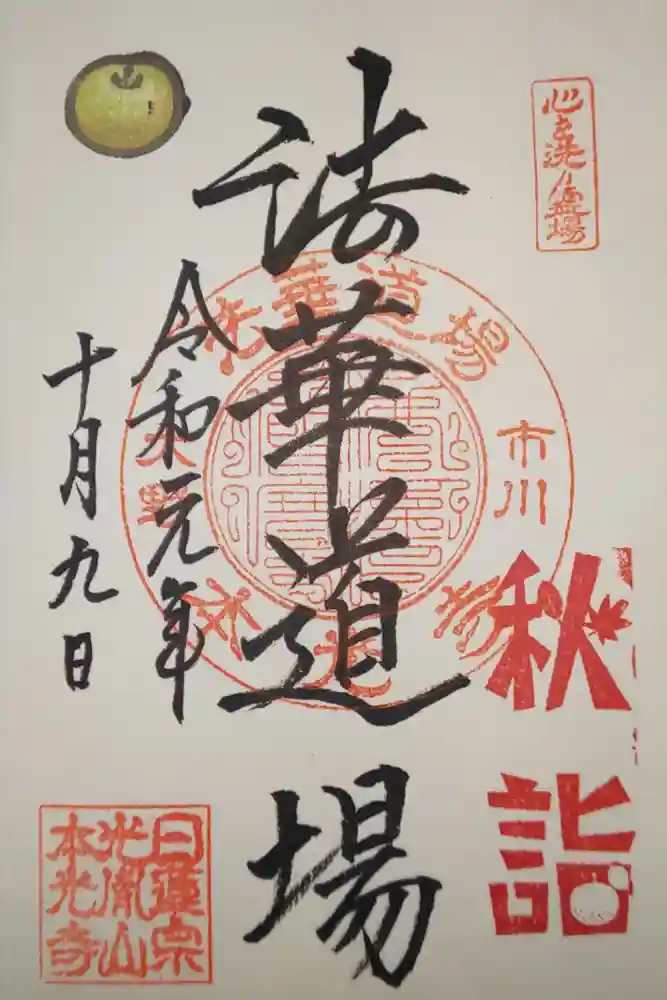 心を洗う道場
秋詣
市川
法華道場
大野
法華道場
令和元年
十月九日
日蓮宗
光胤山
本光寺